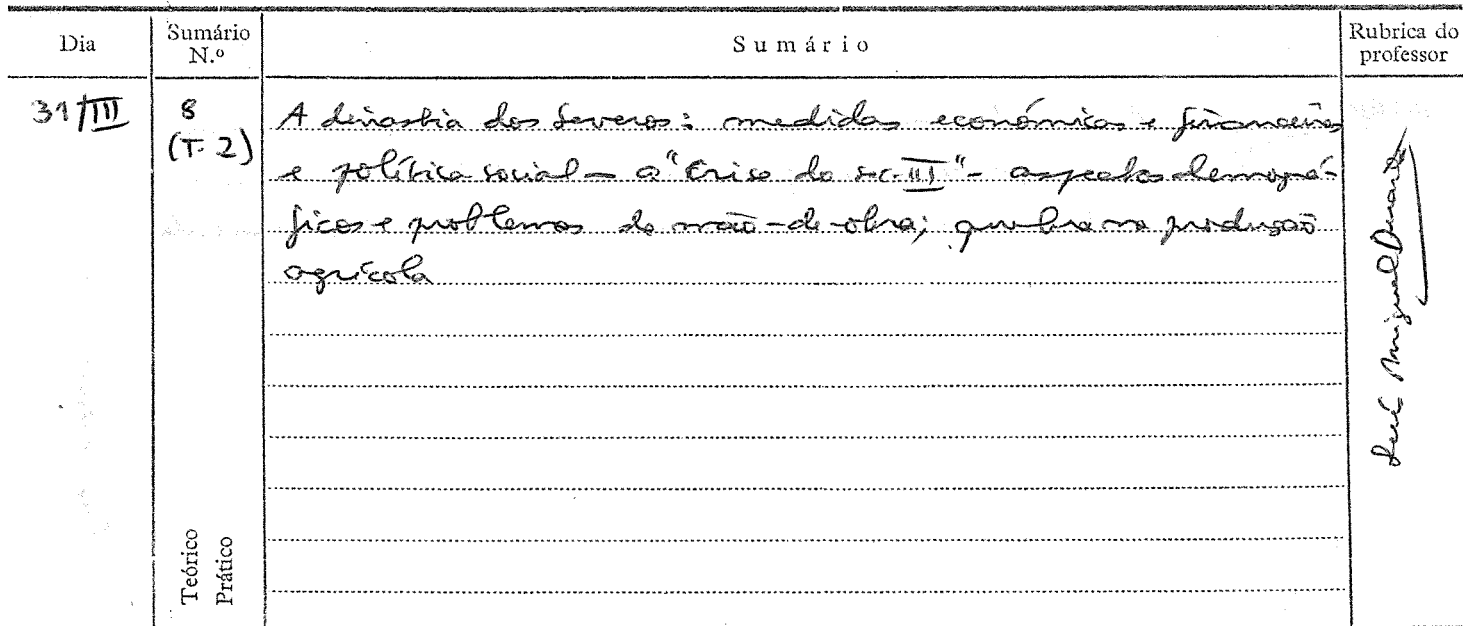 Dia
Sumário N.º
Sumário
Rubrica do professor
31/III
8 (T. 2)
A dinastia dos Severos: medidas económicas e financeiras
e política social – a "Crise do séc. III" – aspectos demográ-
ficos e problemas de mão-de-obra; quebra na produção
agrícola
Teórico
Prático
José Miguel Duarte